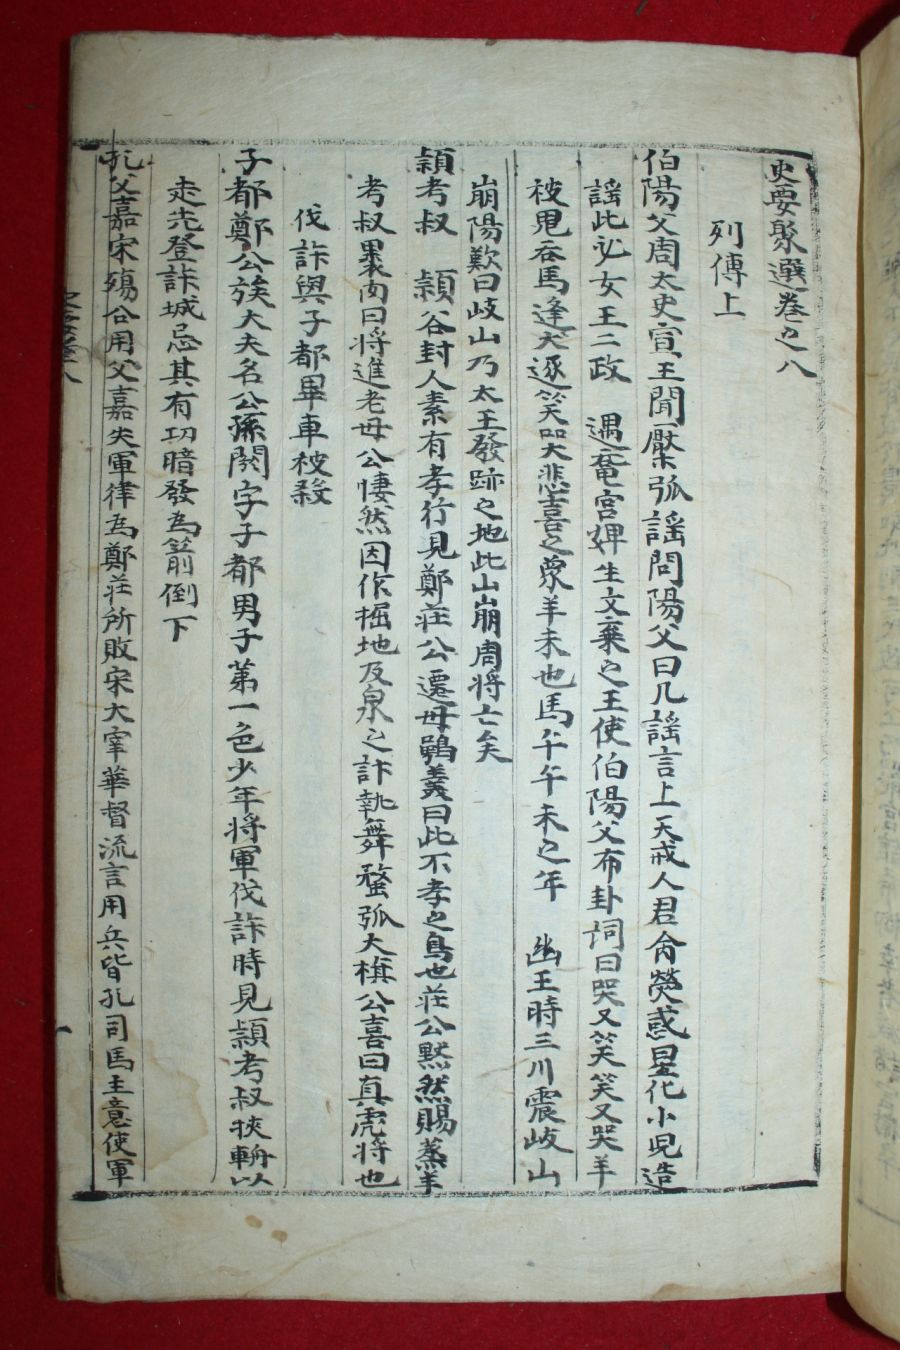 史要聚選卷之八
列傳上
伯陽父周太史宣王聞檿弧謠問陽父曰凡謠言上天戒人君命熒惑星化小兒造
謠此必女主亂政　遇奄宮婢生文棄之王使伯陽父布卦词曰哭又笑笑又哭羊
被鬼吞馬逢犬逐笑哭悲喜之象羊未也馬午午未之年　幽王時三川震岐山
崩陽歎曰岐山乃太王發跡之地此山崩周將亡矣
頴考叔　頴谷封人素有孝行見鄭莊公遷母鶚義曰此不孝之鳥也莊公黙然賜蒸羊
考叔裹肉曰將進老母公悽然因作掘地及泉之計執舞蝥弧大旗公喜曰真虎將也
伐許與子都畢車被殺
子都鄭公族大夫名公孫閼字子都男子第一色少年將軍伐許時見頴考叔挾輈以
走先登許城忌其有功暗發爲箭倒下
孔父嘉宋殤公用父嘉失軍律爲鄭莊所敗宋大宰華督流言用兵皆孔司馬主意使軍